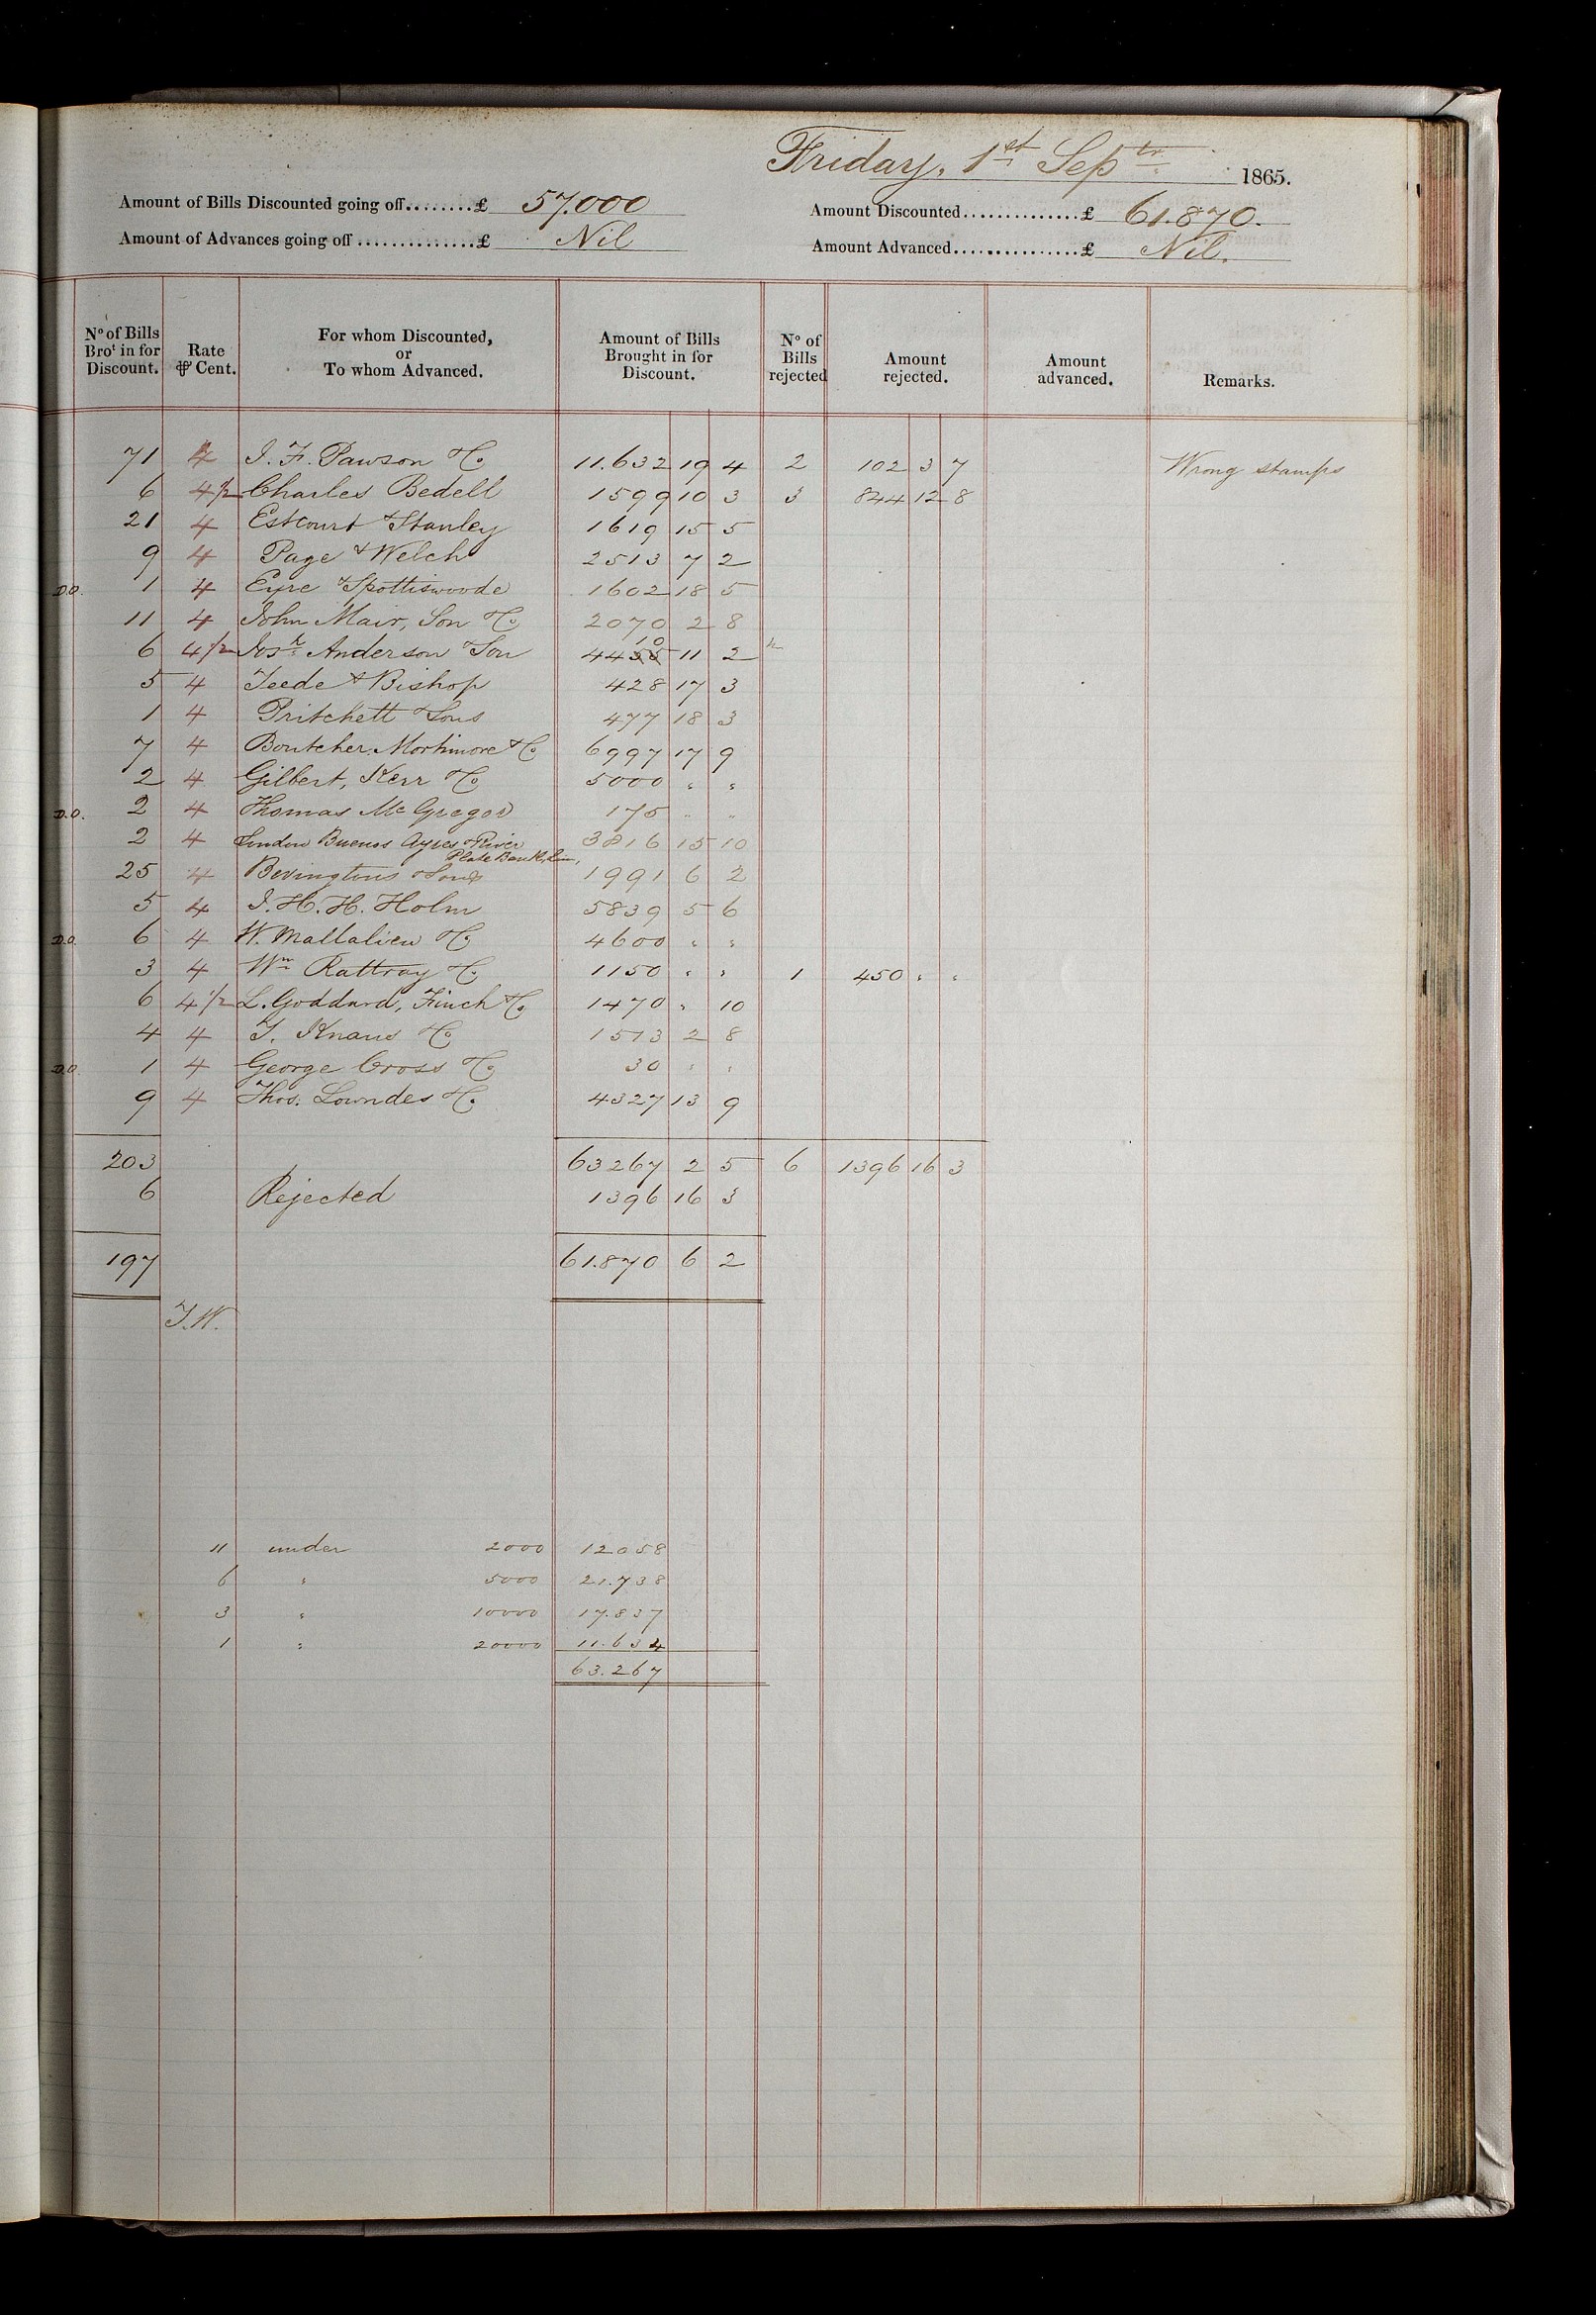 Friday, 1st Septr 1865.
Amount of Bills Discounted going off........£ 57.000 Amount Discounted..............£ 61.870.
Amount of Advances going off...............£ Nil Amount Advanced...............£ Nil.
No of Bills Brot in for Discount. Rate ⅌ Cent. For whom Discounted, or To whom Advanced. Amount of Bills Brought in for Discount. No of Bills rejected Amount rejected. Amount advanced. Remarks.
71 4 I. F. Pawson & Co 11.632 19 4 2 102 3 7 Wrong stamps
6 4½ Charles Bedell 1599 10 3 3 844 12 8
21 4 Estcourt & Stanley 1619 15 5
9 4 Page & Welch 2513 7 2
D.O. 1 4 Eyre & Spottiswoode 1602 18 5
11 4 John Mair, Son & Co 2070 2 8
10
6 4½ Josh Anderson & Son 4455 11 2
5 4 Teede & Bishop 428 17 3
1 4 Pritchett & Sons 477 18 3
7 4 Boutcher, Mortimore & Co 6997 17 9
2 4 Gilbert, Kerr & Co 5000 " "
D.O. 2 4 Thomas McGregor 175 " "
2 4 London Buenos Ayres & River 3816 15 10
Plate Bank, Lim,
25 4 Bevingtons & Sons 1991 6 2
5 4 I. H. H. Holm 5839 5 6
D.O. 6 4 W. Mallalieu & Co 4600 " "
3 4 Wm Rattray & Co 1150 " " 1 450 " "
6 4½ L. Goddard, Finch & Co 1470 " 10
4 4 T. Knaus & Co 1513 2 8
D.O. 1 4 George Cross & Co 30 " "
9 4 Thos. Lowndes & Co 4327 13 9
203 63267 2 5 6 1396 16 3
6 Rejected 1396 16 3
197 61.870 6 2
T.W.
11 under 2000 12058
6 " 5000 21.738
3 " 10000 17.837
1 " 20000 11.634
63.267